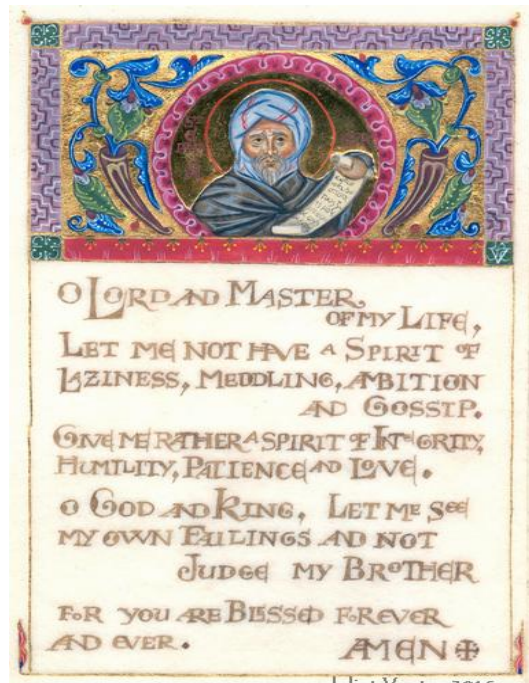 O LORD AND MASTER
OF MY LIFE,
LET ME NOT HAVE A SPIRIT OF
LAZINESS, MEDDLING, AMBITION
AND GOSSIP.
GIVE ME RATHER A SPIRIT OF INTEGRITY,
HUMILITY, PATIENCE AND LOVE.
O GOD AND KING, LET ME SEE
MY OWN FAILINGS AND NOT
JUDGE MY BROTHER
FOR YOU ARE BLESSED FOREVER
AND EVER. AMEN